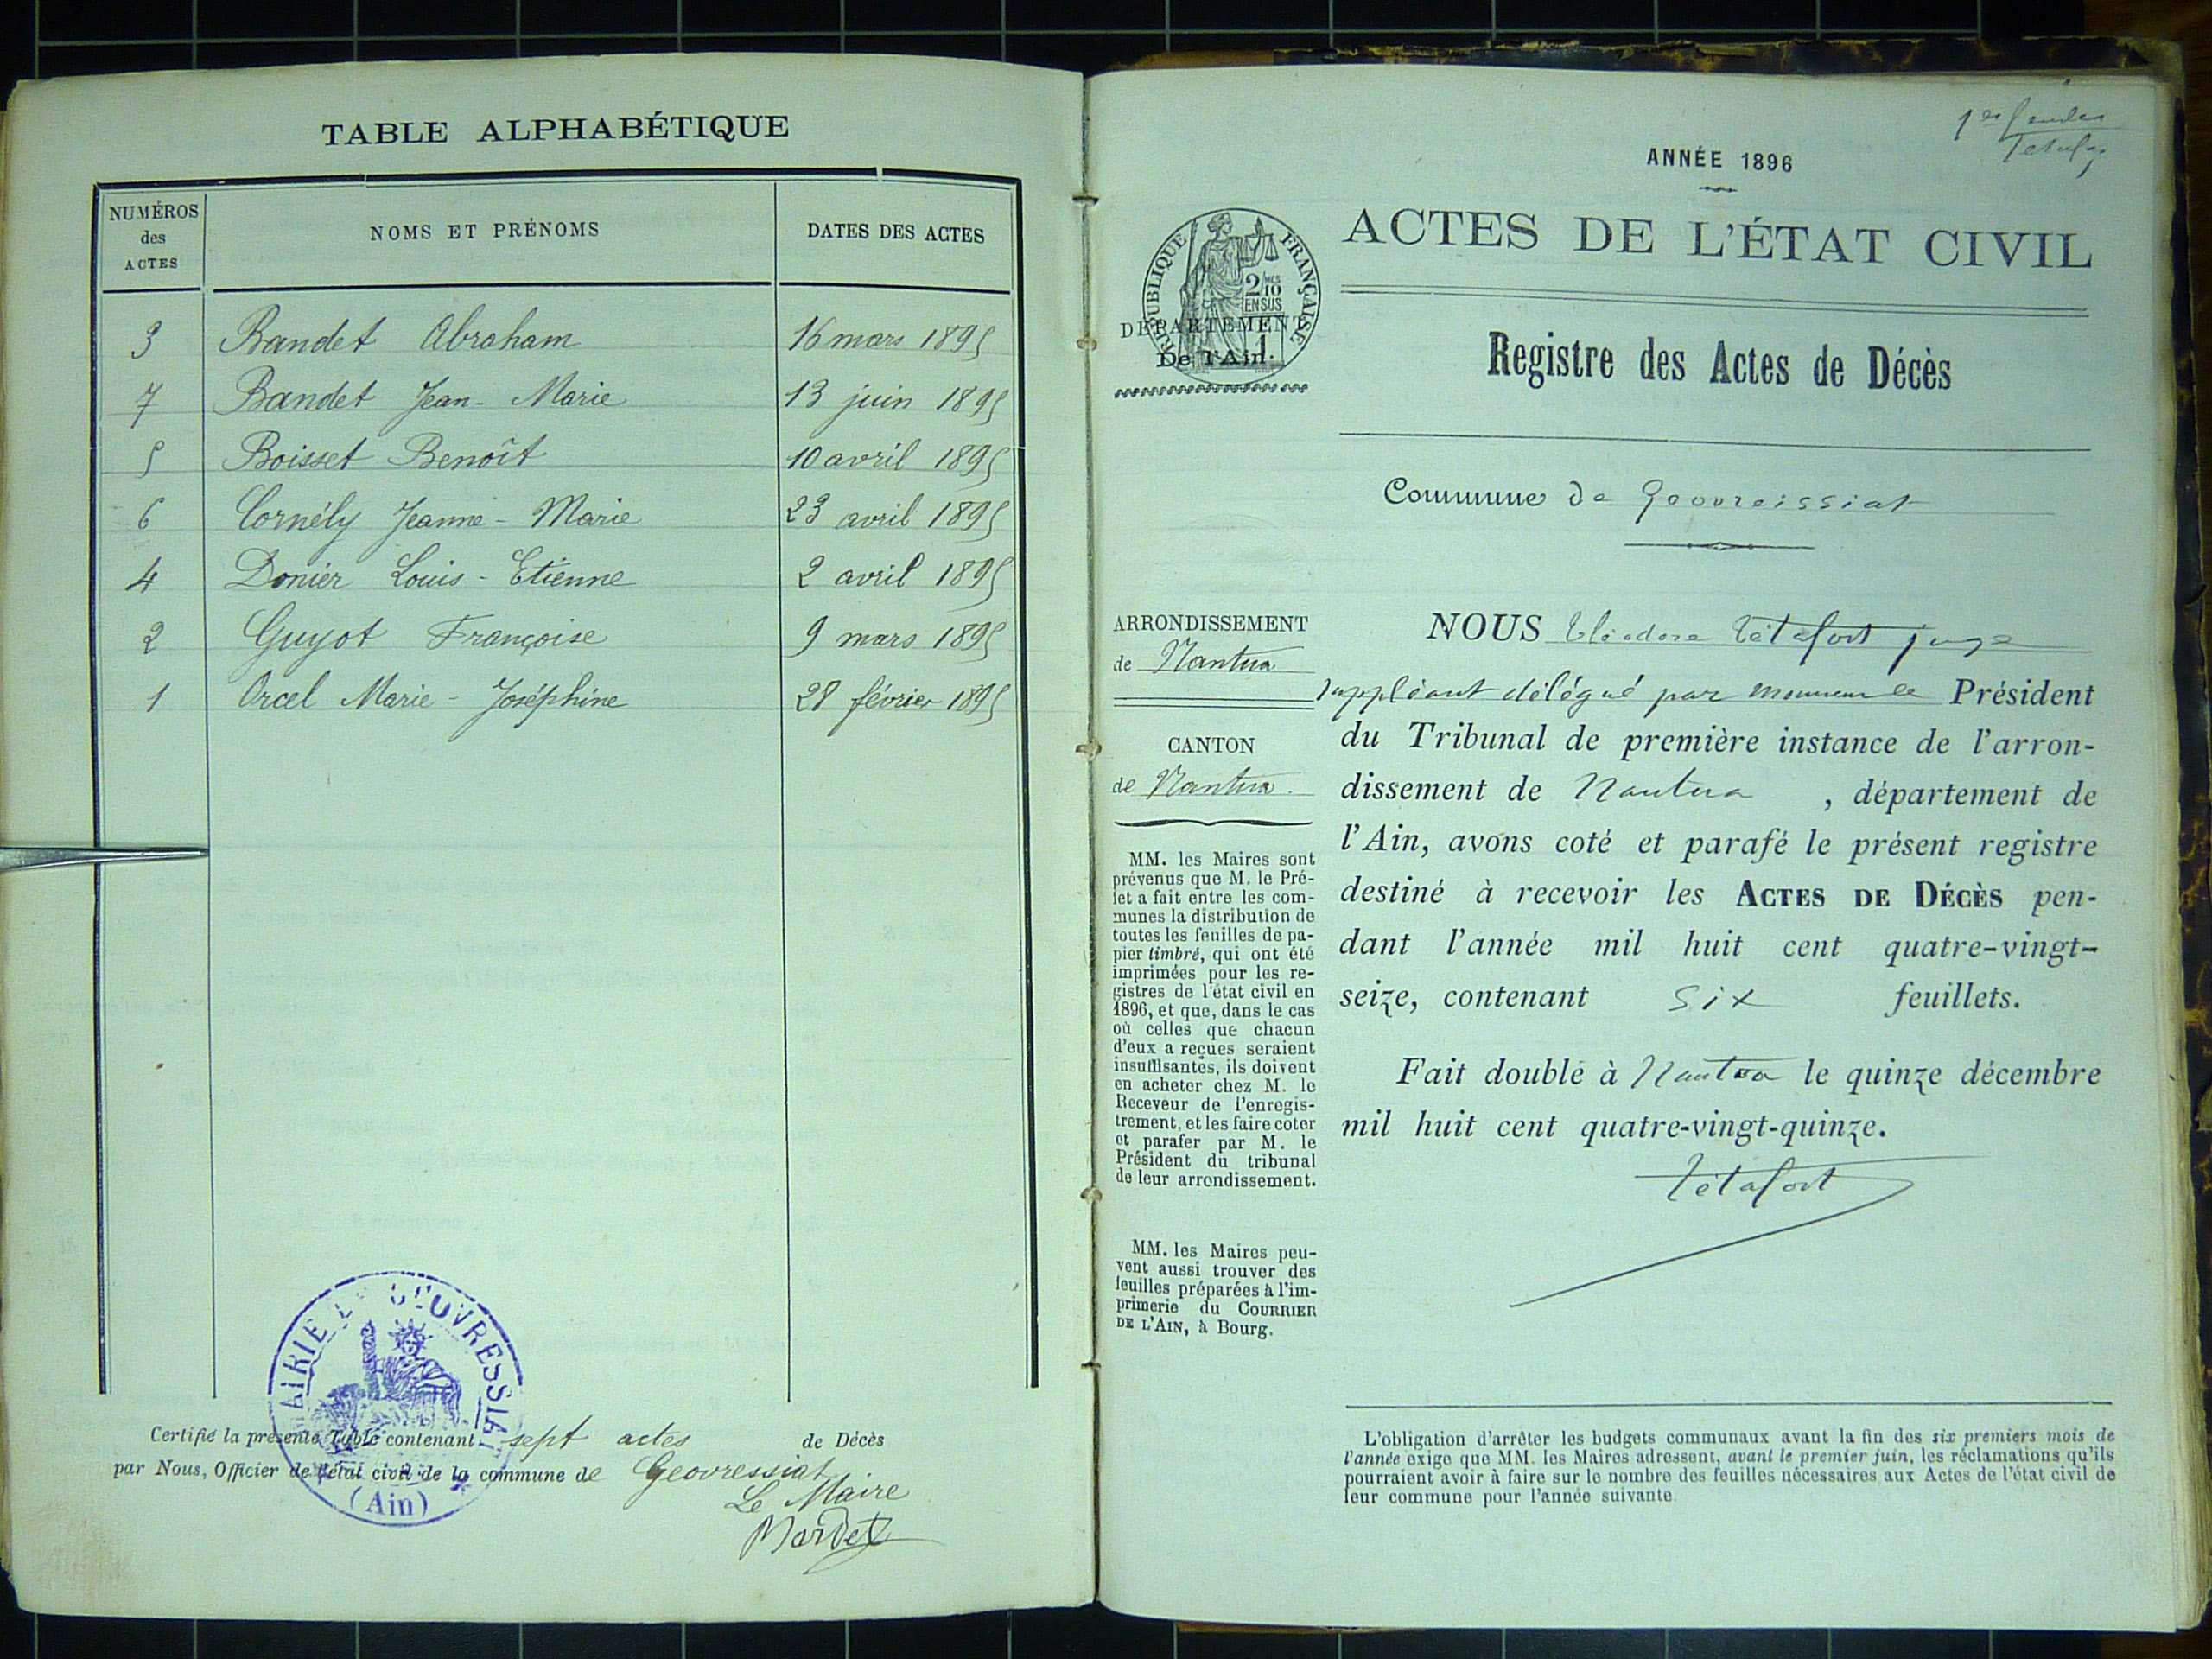 TABLE ALPHABÉTIQUE
NUMÉROS
des
ACTES
NOMS ET PRÉNOMS
DATES DES ACTES
3 Bandet Abraham 16 mars 1895
7 Bandet Jean-Marie 13 juin 1895
5 Boisset Benoît 10 avril 1895
6 Cornély Jeanne-Marie 23 avril 1895
4 Donier Louis-Etienne 2 avril 1895
2 Guyot Françoise 9 mars 1895
1 Orcel Marie-Joséphine 28 février 1895
Certifié la présente Table contenant sept actes de Décès
par Nous, Officier de l'état civil de la commune de Géovressiat
Le Maire
(Ain)
1er feuillet
ANNÉE 1896
ACTES DE L'ÉTAT CIVIL
RÉPUBLIQUE FRANÇAISE
2/10 MES
EN SUS
DÉPARTEMENT
De l'Ain.
Registre des Actes de Décès
Commune de Géovreissiat
ARRONDISSEMENT
de Nantua
CANTON
de Nantua.
MM. les Maires sont
prévenus que M. le Pré-
fet a fait entre les com-
munes la distribution de
toutes les feuilles de pa-
pier timbré, qui ont été
imprimées pour les re-
gistres de l'état civil en
1896, et que, dans le cas
où celles que chacun
d'eux a reçues seraient
insuffisantes, ils doivent
en acheter chez M. le
Receveur de l'enregis-
trement, et les faire coter
et parafer par M. le
Président du tribunal
de leur arrondissement.
MM. les Maires peu-
vent aussi trouver des
feuilles préparées à l'im-
primerie du COURRIER
DE L'AIN, à Bourg.
NOUS Théodore Tétafort juge
suppléant délégué par monsieur le Président
du Tribunal de première instance de l'arron-
dissement de Nantua, département de
l'Ain, avons coté et parafé le présent registre
destiné à recevoir les ACTES DE DÉCÈS pen-
dant l'année mil huit cent quatre-vingt-
seize, contenant six feuillets.
Fait double à Nantua le quinze décembre
mil huit cent quatre-vingt-quinze.
Tétafort
L'obligation d'arrêter les budgets communaux avant la fin des six premiers mois de
l'année exige que MM. les Maires adressent, avant le premier juin, les réclamations qu'ils
pourraient avoir à faire sur le nombre des feuilles nécessaires aux Actes de l'état civil de
leur commune pour l'année suivante.